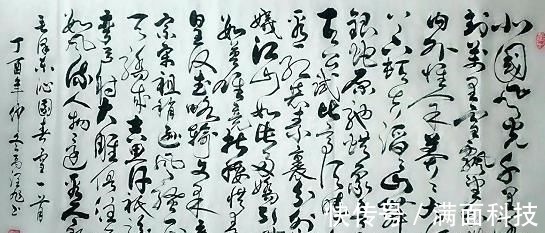 北國風光千里
封万里雪飘
内外惟余莽莽大
上下顿失滔滔山
银蛇原驰蜡象
天公试比高须晴
看红装素裹分外
娆江山如此多娇引
英雄竞折腰惜
皇汉武略输文采
宗宋祖稍逊风骚一
天骄成吉思汗只识
弯弓射大雕俱往
风流人物还看今
毛泽东沁园春雪一首
丁酉年仲冬书
快传号/满面科技